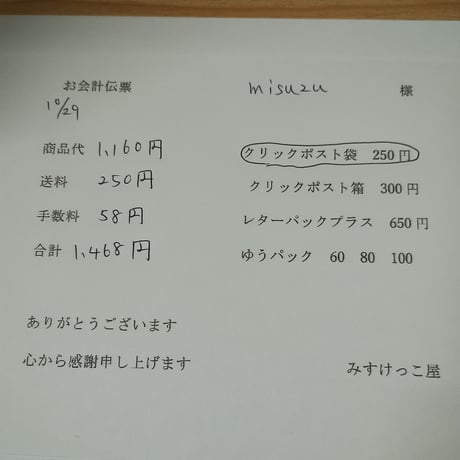 お会計伝票
10/29
misuzu 様
商品代 1,160円
送料 250円
手数料 58円
合計 1,468円
クリックポスト袋 250円
クリックポスト箱 300円
レターパックプラス 650円
ゆうパック 60 80 100
ありがとうございます
心から感謝申し上げます
みすけっこ屋